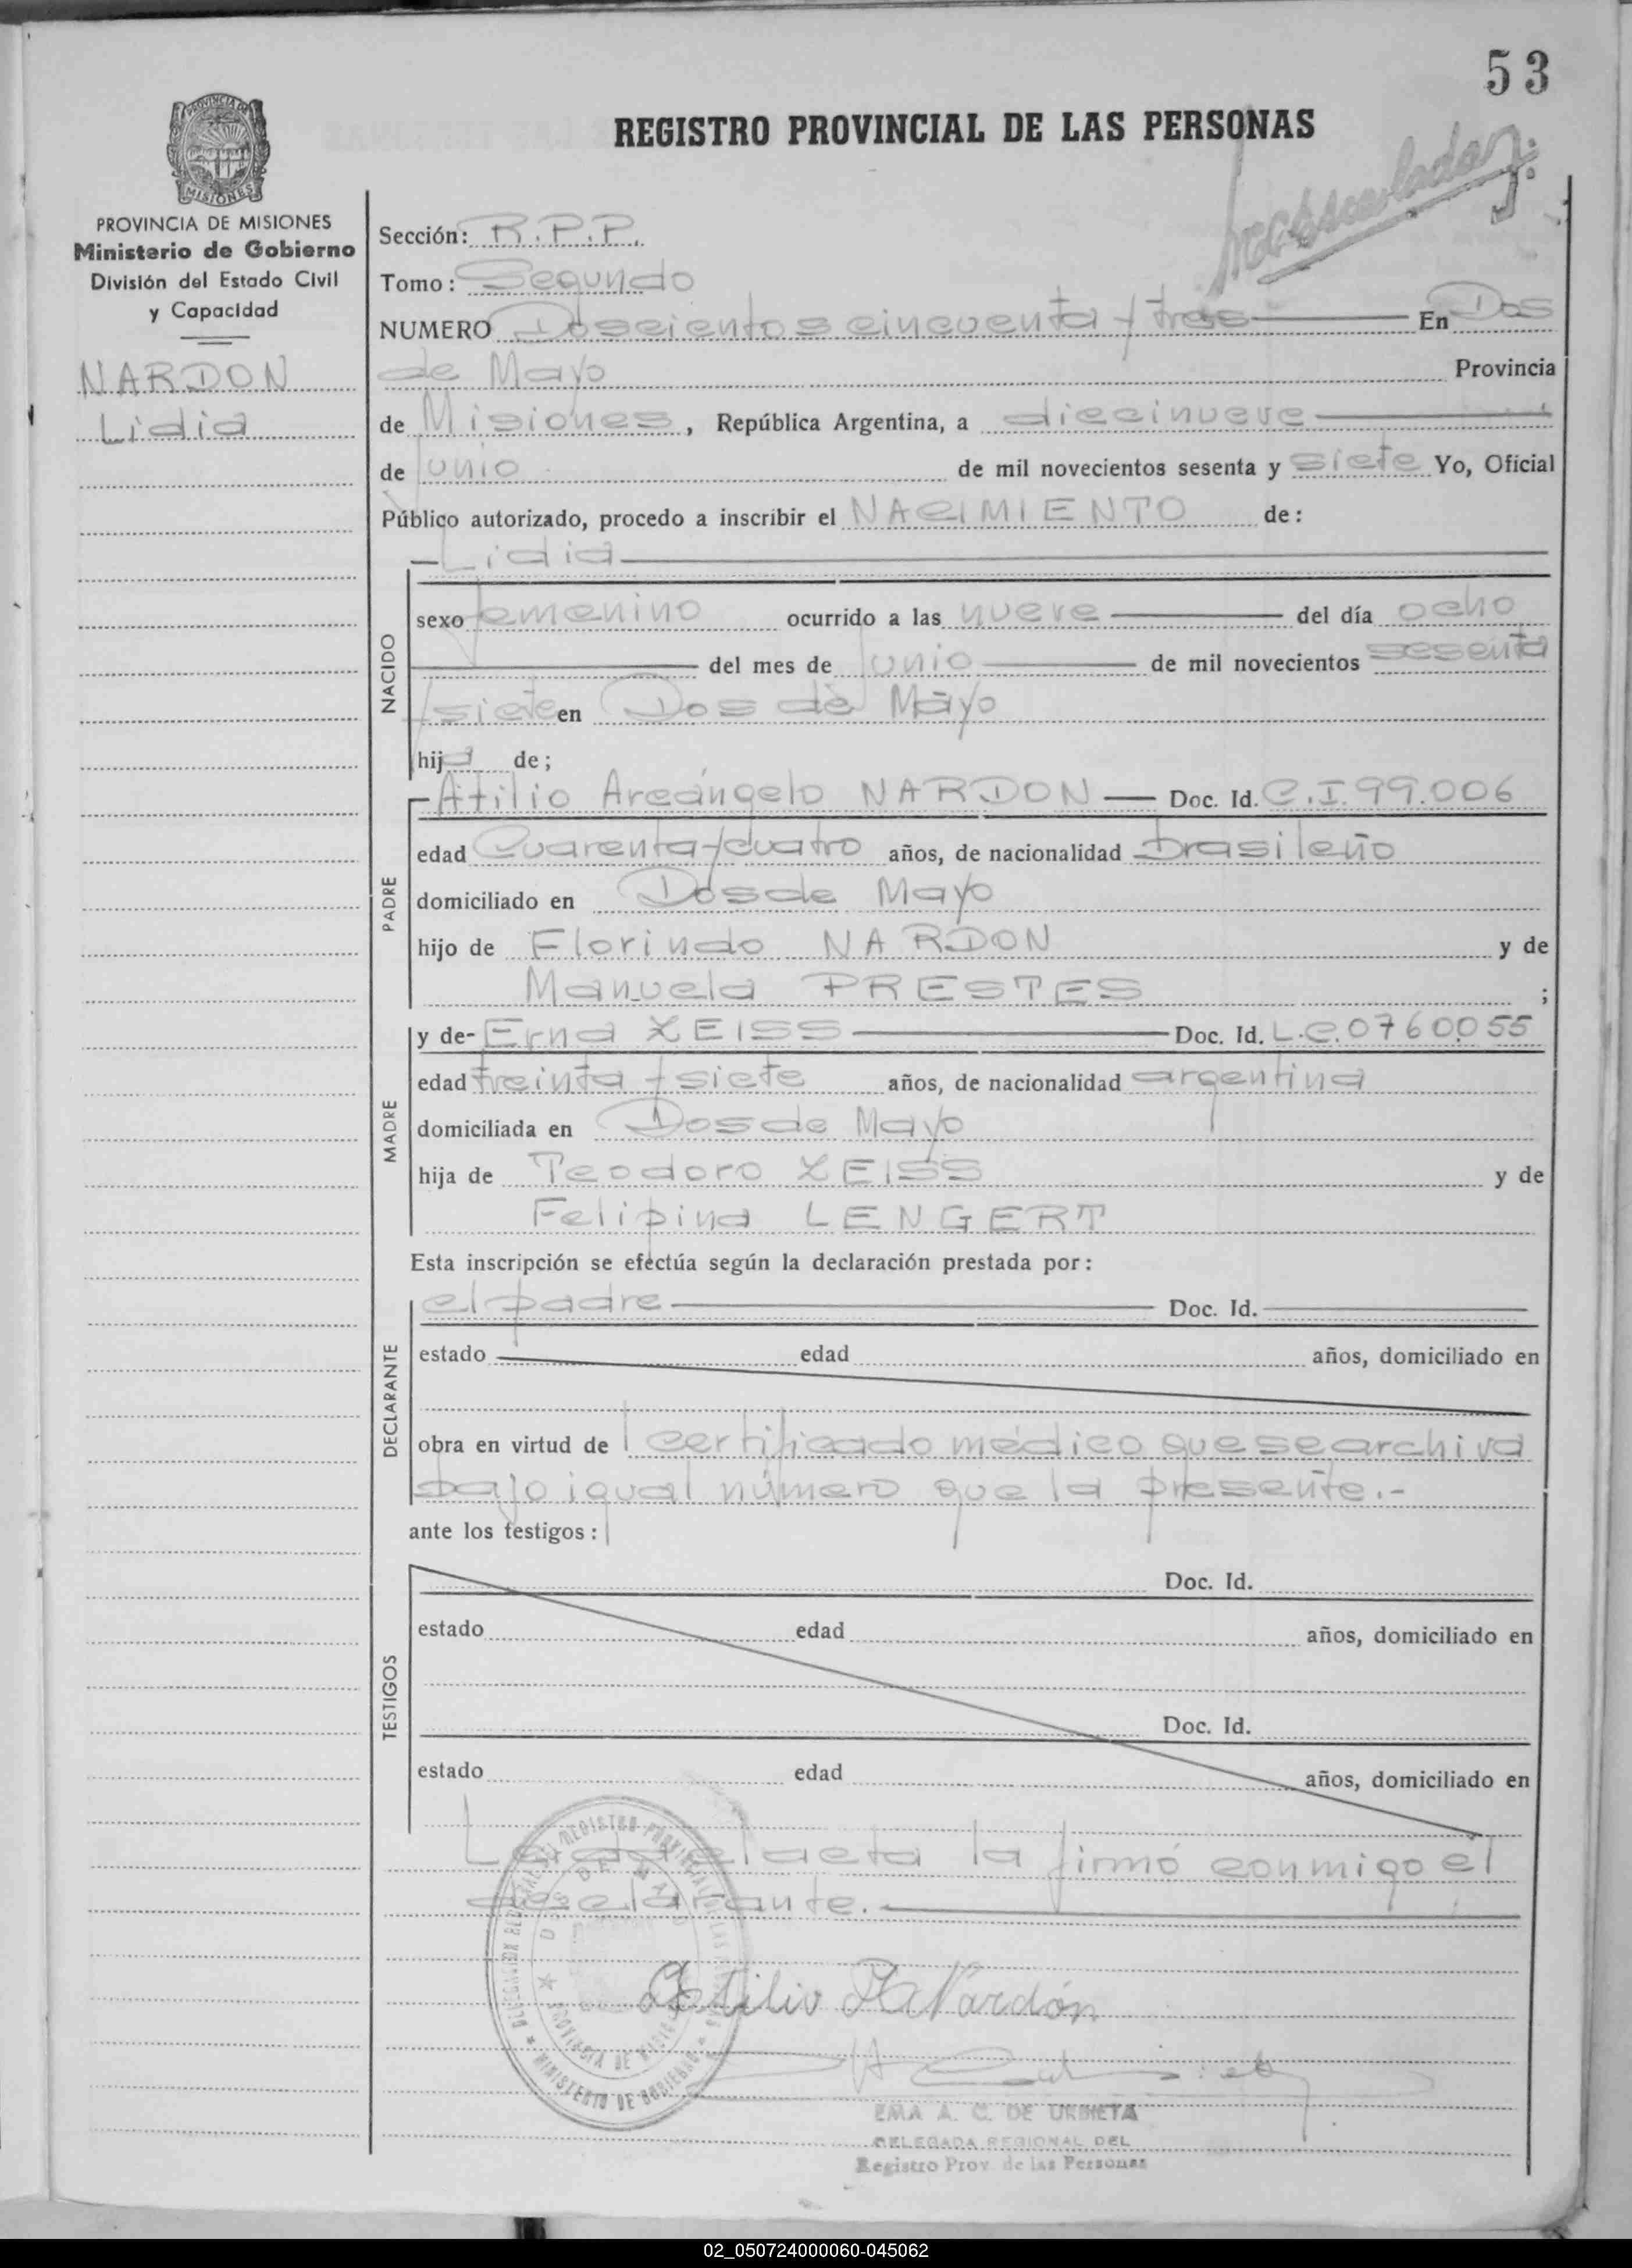 53
REGISTRO PROVINCIAL DE LAS PERSONAS
PROVINCIA DE
MISIONES
PROVINCIA DE MISIONES
Ministerio de Gobierno
División del Estado Civil
y Capacidad
NARDON
Lidia
Sección: R.P.P.
Tomo: Segundo
NUMERO Doscientos cincuenta y tres En Dos
de Mayo Provincia
de Misiones, República Argentina, a diecinueve
de junio de mil novecientos sesenta y siete Yo, Oficial
Público autorizado, procedo a inscribir el NACIMIENTO de:
Lidia
NACIDO
sexo femenino ocurrido a las nueve del día ocho
del mes de junio de mil novecientos sesenta
y siete en Dos de Mayo
hija de;
PADRE
Atilio Arcángelo NARDON Doc. Id. C.I. 99.006
edad Cuarenta y cuatro años, de nacionalidad brasileño
domiciliado en Dos de Mayo
hijo de Florindo NARDON y de
Manuela PRESTES ;
MADRE
y de- Erna ZEISS Doc. Id. L.C. 0760055
edad treinta y siete años, de nacionalidad argentina
domiciliada en Dos de Mayo
hija de Teodoro ZEISS y de
Felipina LENGERT
Esta inscripción se efectúa según la declaración prestada por:
DECLARANTE
el padre Doc. Id.
estado edad años, domiciliado en
obra en virtud de certificado médico que se archiva
bajo igual número que la presente.-
ante los testigos:
TESTIGOS
Doc. Id.
estado edad años, domiciliado en
Doc. Id.
estado edad años, domiciliado en
Leída el acta la firmó conmigo el
declarante.
Atilio A Nardón
EMA A. C. DE URBIETA
DELEGADA REGIONAL DEL
Registro Prov. de las Personas
02_050724000060-045062